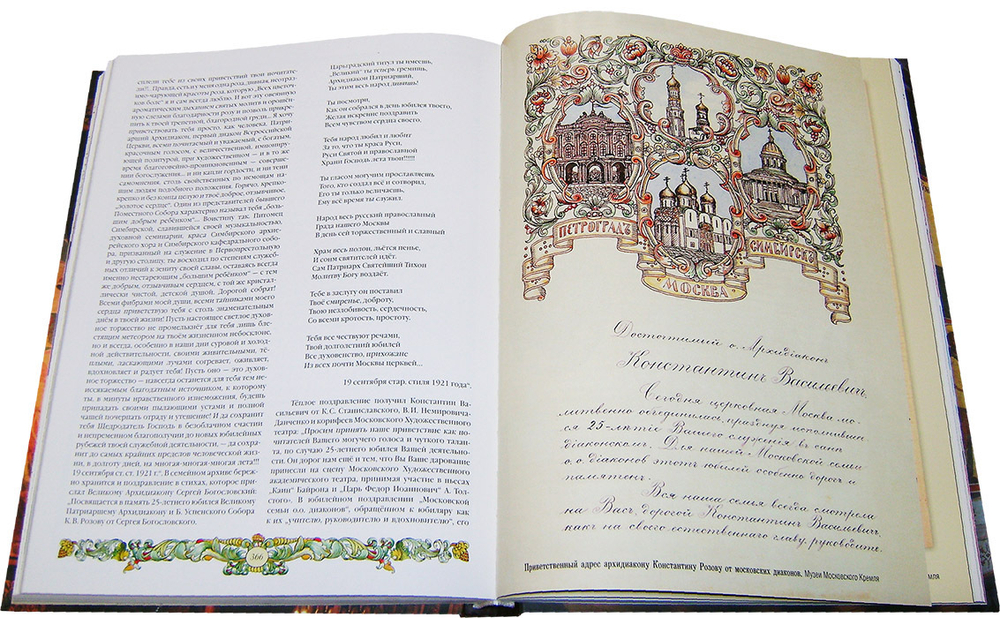 сплели тебе из своих приветствий твои почитате-
ли?!. Правда, есть и у меня одна роза, дивная, неотраз-
имо-чарующей красоты роза, которую „Всех цветоч-
ков боле“ я и сам всегда люблю. И вот эту овеянную
ароматическим дыханием святых молитв и орошён-
ную слезами благодарности розу и позволь прикре-
пить к твоей трепетной, благородной груди... Я хочу
приветствовать тебя просто, как человека. Патри-
арший Архидиакон, первый диакон Всероссийской
Церкви, всеми почитаемый и уважаемый, с богатым,
красочным голосом, с величественной, импонирую-
ющей позитурой, при художественном — и в то же
время благоговейно-проникновенном — соверше-
нии богослужения... и ни капли гордости, и ни тени
самомнения, столь свойственных по немощам на-
шим людям подобного положения. Горячо, крепко-
крепко и без конца целую я твоё доброе, отзывчивое,
„золотое сердце“. Один из представителей бывшего
Поместного Собора характерно называл тебя „боль-
шим добрым ребёнком“... Воистину так. Питомец
Симбирской, славившейся своей музыкальностью,
духовной семинарии, краса Симбирского архие-
рейского хора и Симбирского кафедрального собо-
ра, призванный на служение в Первопрестольную
и другую столицу, ты восходил по степеням служеб-
ных отличий к зениту своей славы, оставаясь всегда
именно нестареющим „большим ребёнком“ — с тем
же добрым, отзывчивым сердцем, с той же кристал-
лически чистой, детской душой. Дорогой собрат!
Всеми фибрами моей души, всеми тайниками моего
сердца приветствую тебя с столь знаменательным
днём в твоей жизни! Пусть настоящее светлое духов-
ное торжество не промелькнёт для тебя лишь бле-
стящим метеором на твоём жизненном небосклоне,
но и всегда, особенно в наши дни суровой и холод-
ной действительности, своими живительными, тё-
плыми, ласкающими лучами согревает, оживляет,
вдохновляет и радует тебя! Пусть оно — это духов-
ное торжество — навсегда останется для тебя тем не-
иссякаемым благодатным источником, к которому
ты, в минуты нравственного изнеможения, будешь
припадать своими пылающими устами и полной
чашей почерпать отраду и утешение! И да сохранит
тебя Щедродатель Господь в безоблачном счастии
и непременном благополучии до новых юбилейных
рубежей твоей служебной деятельности, — да сохра-
нит до самых крайних пределов человеческой жизни,
в долготу дней, на многая-многая-многая лета!!!
19 сентября ст. ст. 1921 г.“. В семейном архиве береж-
но хранится и поздравление в стихах, которое при-
слал Великому Архидиакону Сергей Богословский:
„Посвящается в память 25-летнего юбилея Великому
Патриаршему Архидиакону и Б. Успенского Собора
К. В. Розову от Сергея Богословского.
Царьградский титул ты имеешь,
„Великий“ ты теперь гремишь,
Архидиакон Патриарший,
Ты этим весь народ дивишь!
Ты посмотри,
Как он собрался в день юбилея твоего,
Желая искренне поздравить
Всем чувством сердца своего.
Тебя народ любил и любит
За то, что ты краса Руси,
Руси Святой и православной
Храни Господь лета твои!!!!!
Ты гласом могучим прославляешь
Того, кто создал всё и сотворил,
Его ты только величаешь,
Ему всё время ты служил.
Народ весь русский православный
Града нашего Москвы
В день сей торжественный и славный
Храм весь полон, льётся пенье,
И сонм святителей идёт.
Сам Патриарх Святейший Тихон
Молитву Богу воздаёт.
Тебе в заслугу он поставил
Твоё смиренье, доброту,
Твою незлобивость, сердечность,
Со всеми кротость, простоту.
Тебя все чествуют речами,
Твой долголетний юбилей
Все духовенство, прихожане
Из всех почти Москвы церквей...
19 сентября стар. стиля 1921 года“.
Тёплое поздравление получил Константин Ва-
сильевич от К.С. Станиславского, В.И. Немировича-
Данченко и корифеев Московского Художественного
театра: „Просим принять наше приветствие как по-
читателей Вашего могучего голоса и чуткого талан-
та, по случаю 25-летнего юбилея Вашей деятельно-
сти. Он дорог нам ещё и тем, что Вы Ваше дарование
принесли на сцену Московского Художественного
академического театра, принимая участие в пьесах
„Каин“ Байрона и „Царь Федор Иоаннович“ А. Тол-
стого“. В юбилейном поздравлении „Московской
семьи о.о. диаконов“, обращённом к юбиляру как
к их „учителю, руководителю и вдохновителю“, его
366
ПЕТРОГРАДЪ
МОСКВА
СИМБИРСКЪ
Досточтимый о. Архидіаконъ
Константинъ Васильевичъ.
Сегодня церковная Москва мо-
литвенно объединилась, празднуя исполнивш.
ся 25-лѣтіе Вашего служенія въ санѣ
діаконскомъ. Для нашей Московской семьи
о.о. діаконовъ этотъ юбилей особенно дорогъ и
памятенъ.
Вся наша семья всегда смотрѣла
на Васъ, дорогой Константинъ Васильевичъ,
какъ на своего естественнаго главу, руководите-
Приветственный адрес архидиакону Константину Розову от московских диаконов. Музеи Московского Кремля
мля